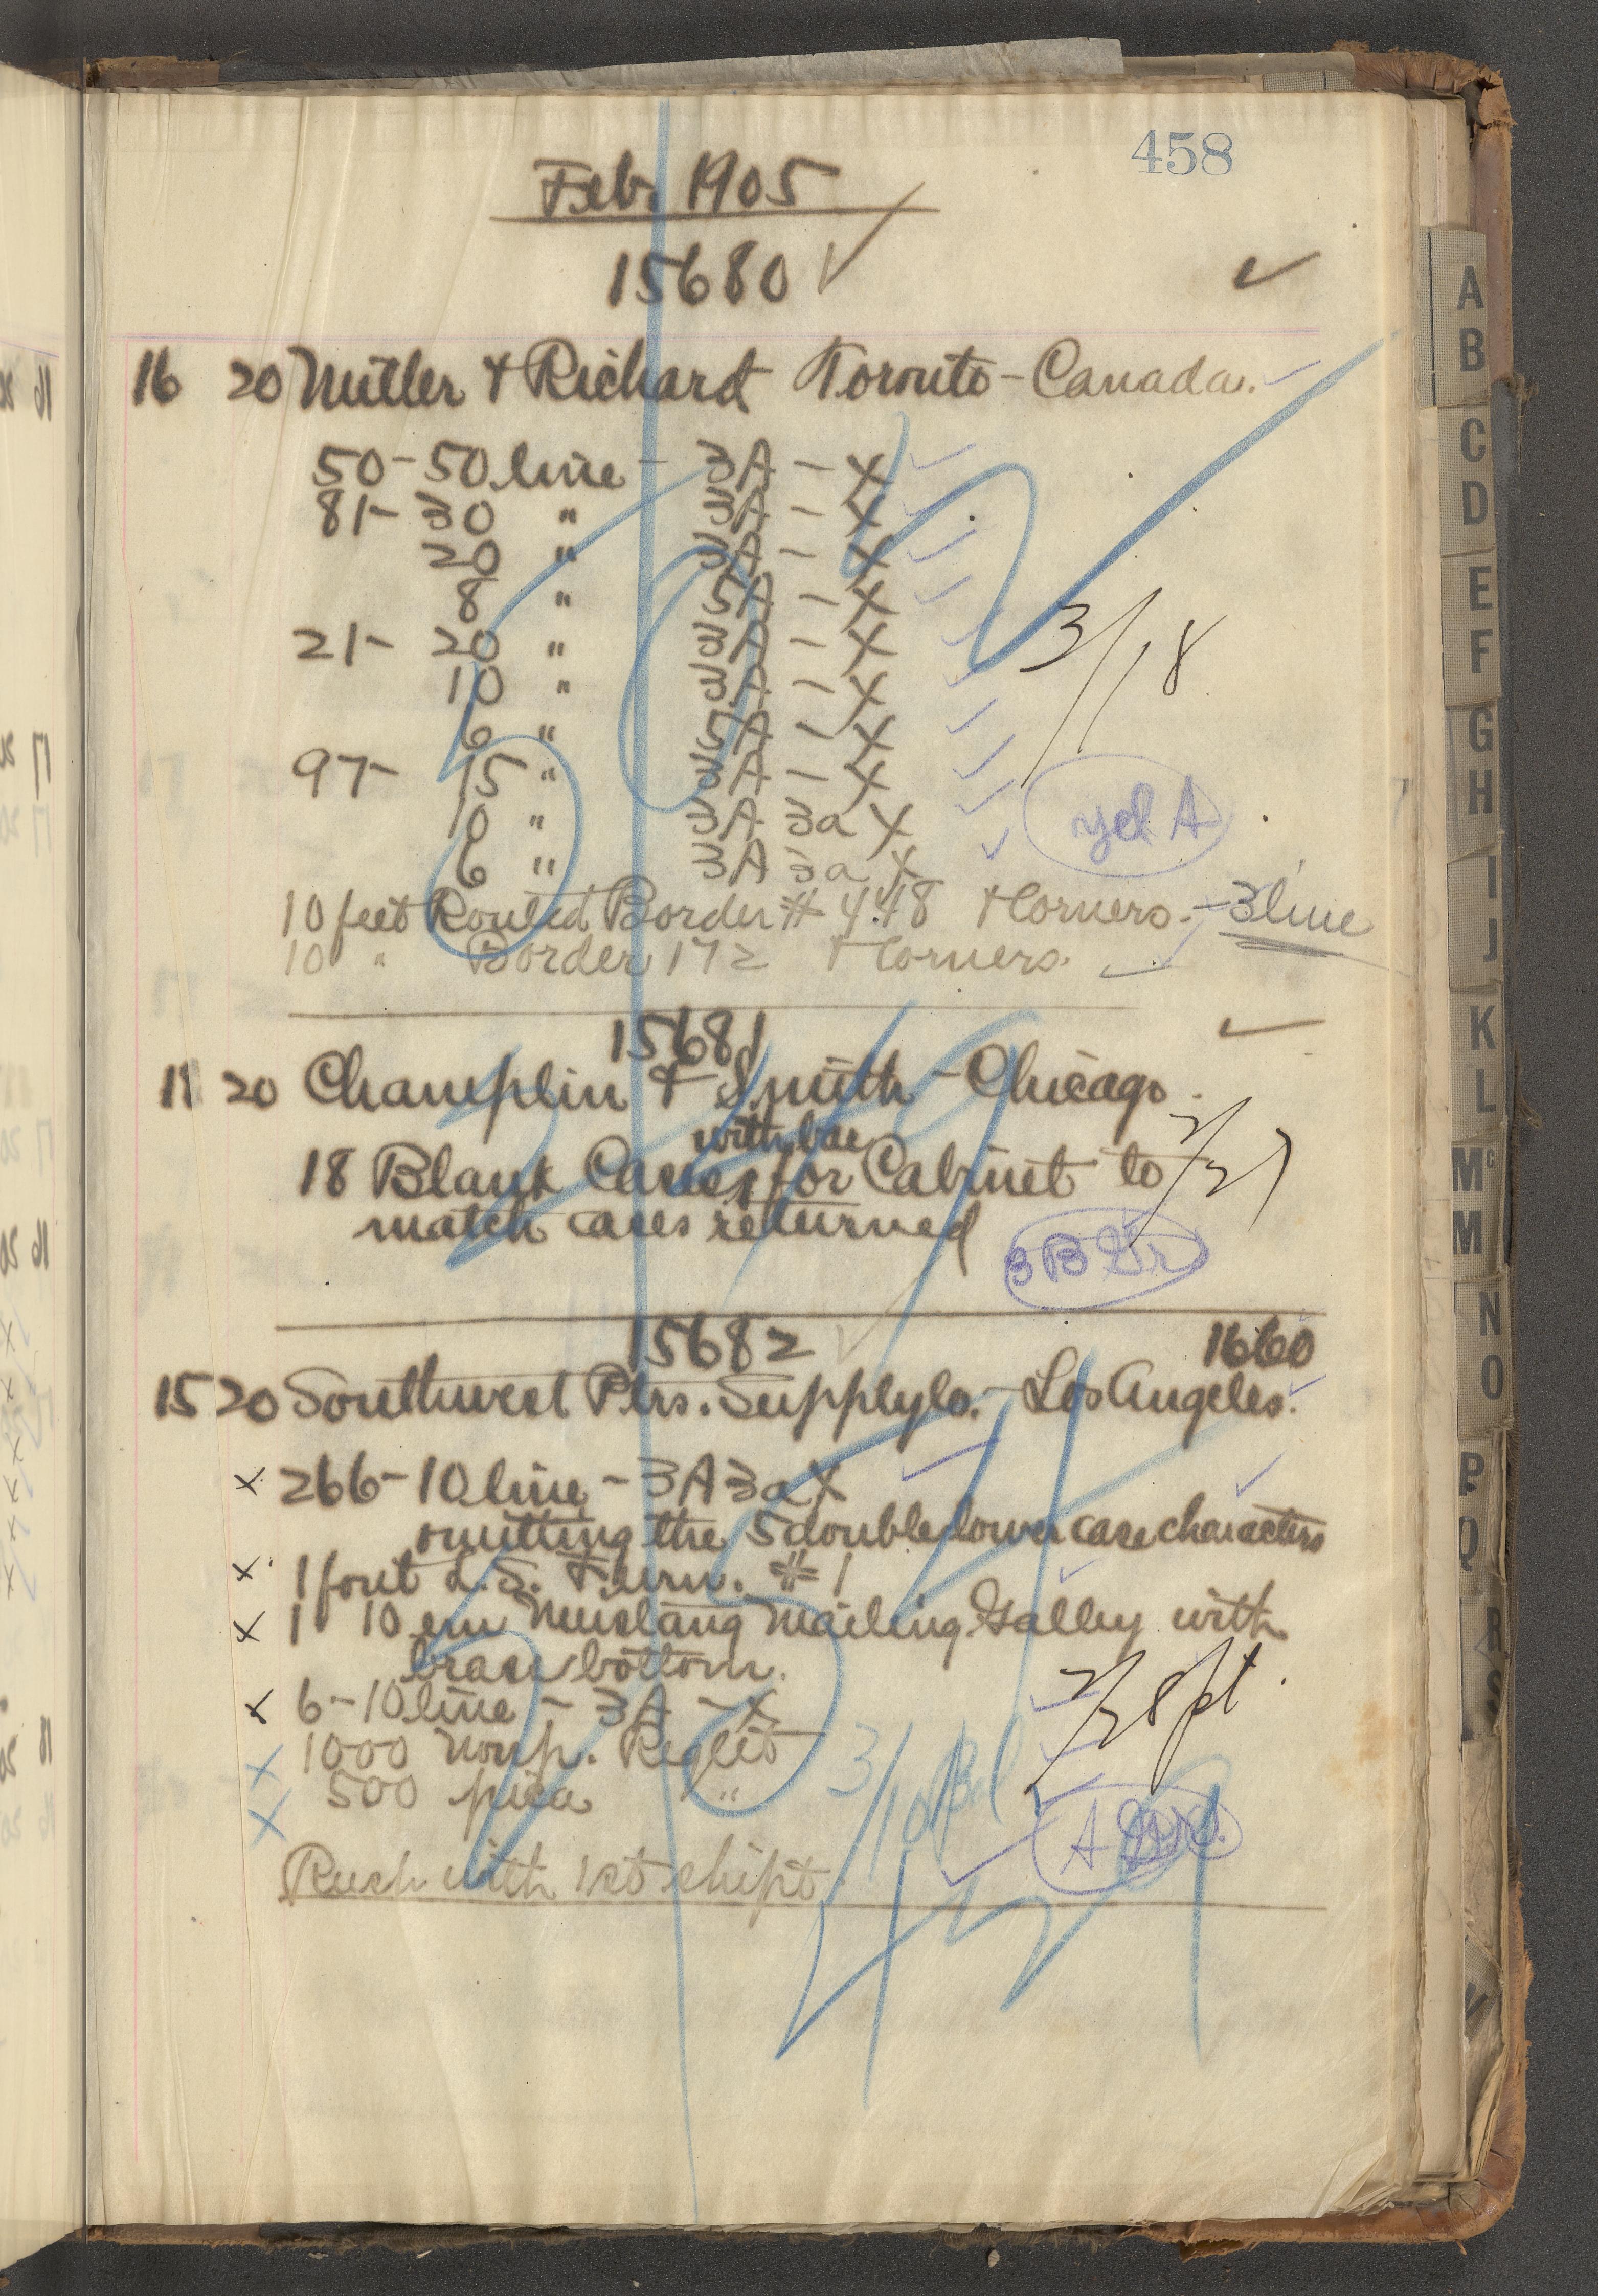 458
Feb. 1905
15680 ✓
16 20 Miller & Richard Toronto - Canada.
50 - 50 line - 3A - X
81 - 30 " 3A - X
20 " 3A - X
8 " 5A - X
21 - 20 " 3A - X
10 " 3A - X
6 " 5A - X
3/18
97 - 15 " 3A - X
10 " 3A 3a X
yel A
6 " 3A 3a X
10 feet Routed Border # 448 & Corners. - 3 line
10 " Border 172 & Corners
15681
18 20 Champlin & Smith - Chicago.
with bra
18 Blank Cases for Cabinet to
match cases returned
2/27
3 B Gr
15682 1660
15 20 Southwest Ptrs. Supply Co. - Los Angeles.
x 266 - 10 line - 3A 3a X
omitting the 5 double lower case characters
x 1 font L.S. Furn. # 1
x 1 10 em Mustang Mailing Galley with
brass bottom.
x 6 - 10 line - 3A - X
2/28 pt.
x 1000 Nonp. Reglet
x 500 pica "
3/10 Bl
Rush with 1st shipt.
A
B
C
D
E
F
G
H
I
J
K
L
Mc
M
N
O
P
Q
R
S